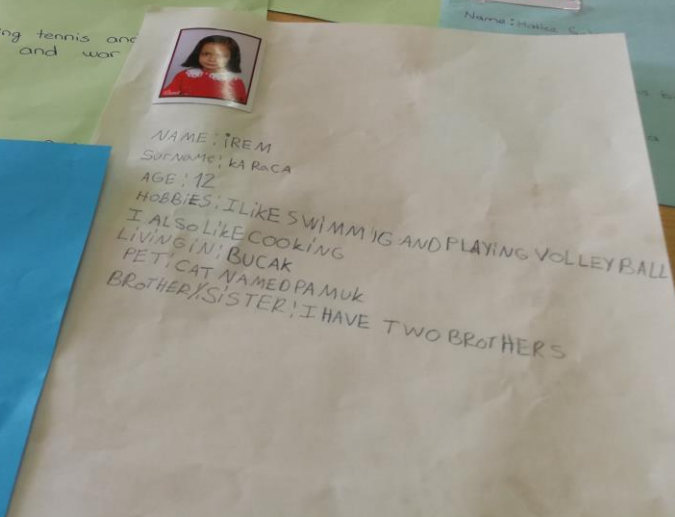 ng tennis and
and war
Name:
NAME: İREM
SURNAME: KARACA
AGE: 12
HOBBİES: I LİKE SWIMMİG AND PLAYİNG VOLLEYBALL
I ALSO LİKE COOKİNG
LİVİNG İN: BUCAK
PET: CAT NAMED PAMUK
BROTHER/SİSTER: I HAVE TWO BROTHERS